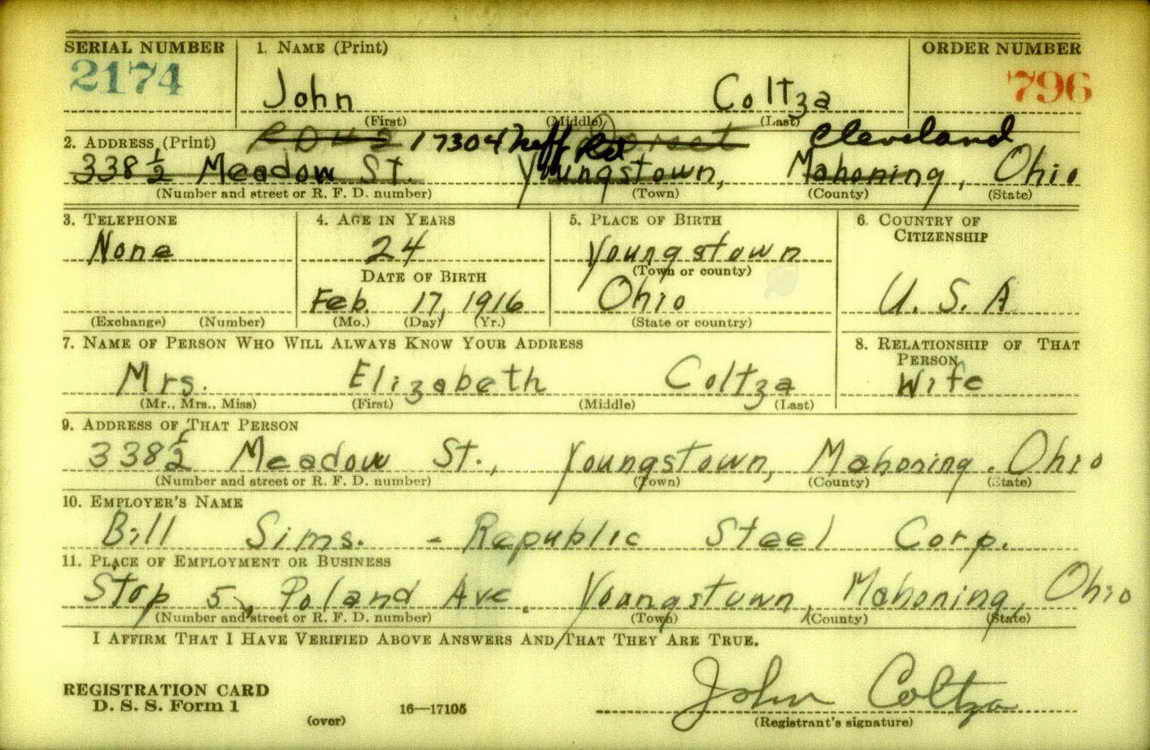 SERIAL NUMBER 1. NAME (Print) ORDER NUMBER
2174 John Coltza 796
(First) (Middle) (Last)
2. ADDRESS (Print) 17304 Neff Rd Cleveland
338 1/2 Meadow St. Youngstown, Mahoning, Ohio
(Number and street or R. F. D. number) (Town) (County) (State)
3. TELEPHONE 4. AGE IN YEARS 5. PLACE OF BIRTH 6. COUNTRY OF CITIZENSHIP
None 24 Youngstown
DATE OF BIRTH (Town or county)
Feb. 17, 1916 Ohio U. S. A
(Exchange) (Number) (Mo.) (Day) (Yr.) (State or country)
7. NAME OF PERSON WHO WILL ALWAYS KNOW YOUR ADDRESS 8. RELATIONSHIP OF THAT PERSON
Mrs. Elizabeth Coltza Wife
(Mr., Mrs., Miss) (First) (Middle) (Last)
9. ADDRESS OF THAT PERSON
338 1/2 Meadow St., Youngstown, Mahoning. Ohio
(Number and street or R. F. D. number) (Town) (County) (State)
10. EMPLOYER'S NAME
Bill Sims. - Republic Steel Corp.
11. PLACE OF EMPLOYMENT OR BUSINESS
Stop 5, Poland Ave. Youngstown, Mahoning, Ohio
(Number and street or R. F. D. number) (Town) (County) (State)
I AFFIRM THAT I HAVE VERIFIED ABOVE ANSWERS AND THAT THEY ARE TRUE.
REGISTRATION CARD
D. S. S. Form 1
(over) 16—17105
John Coltza
(Registrant's signature)